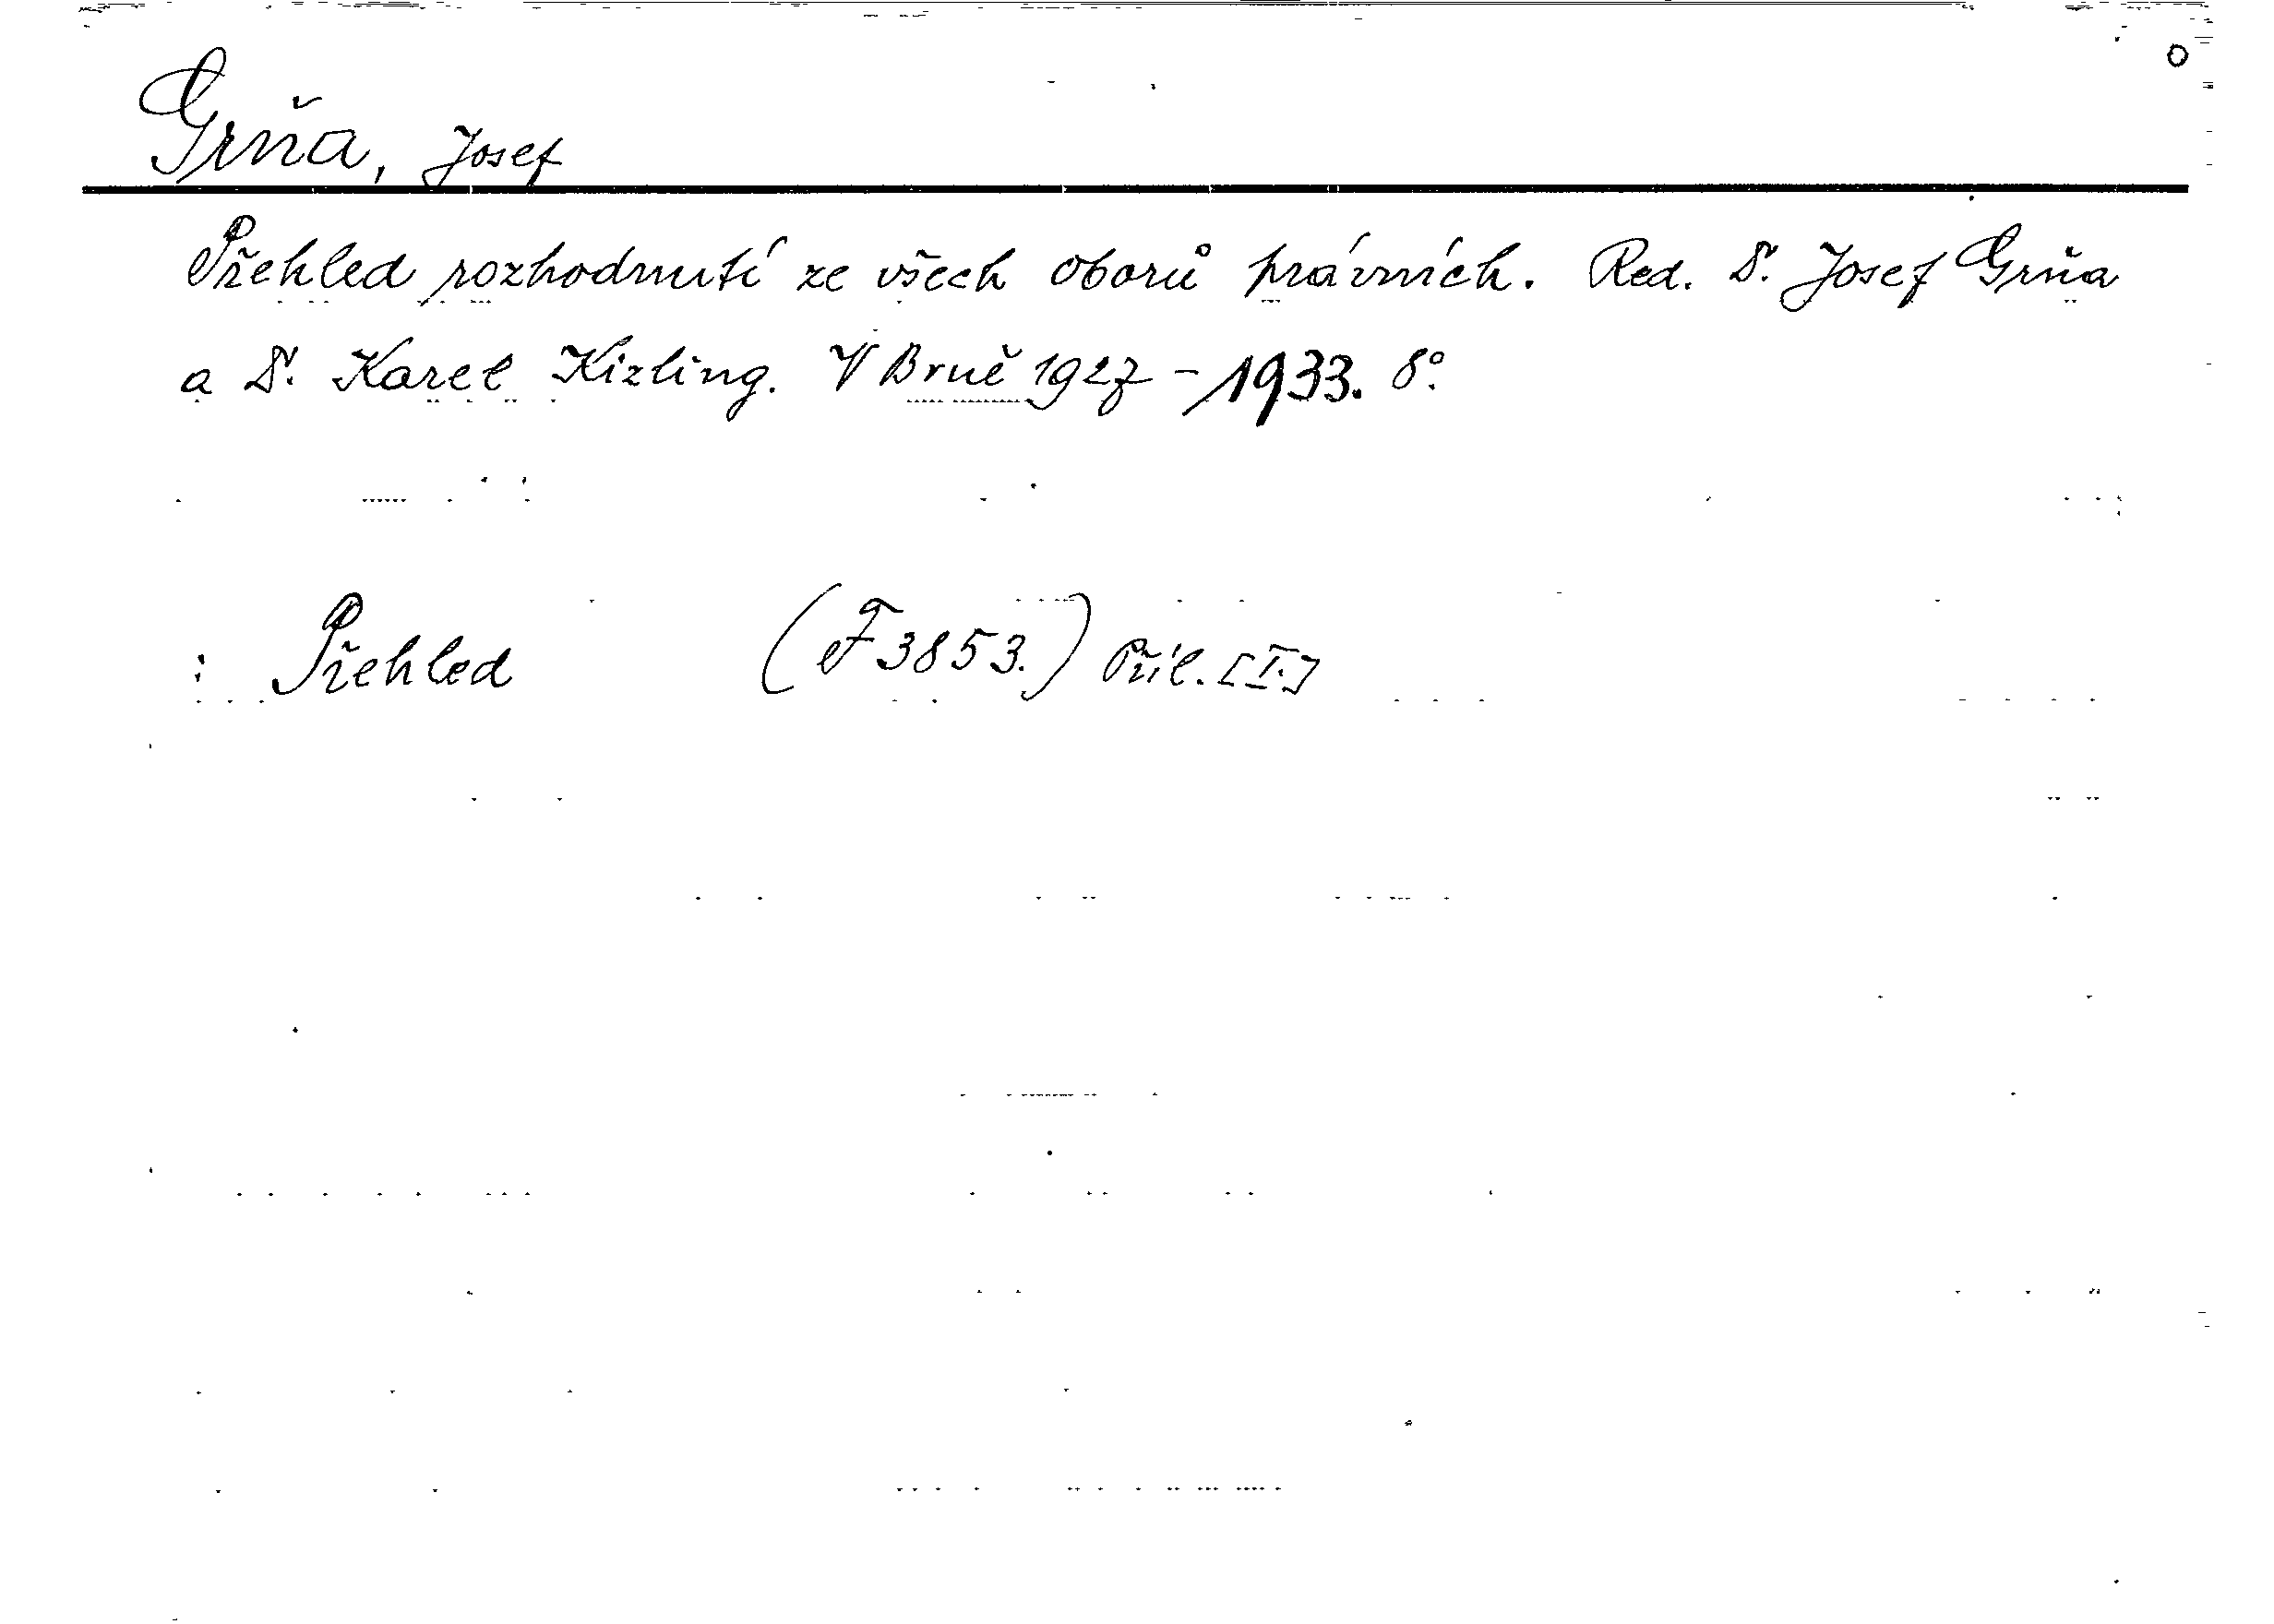 Grňa, Josef
Přehled rozhodnutí ze všech oborů právních. Red. Dr. Josef Grňa
a Dr. Karel Kizling. V Brně 1927-1933. 8°.
: Přehled (F 3853.) Příl. [I.]